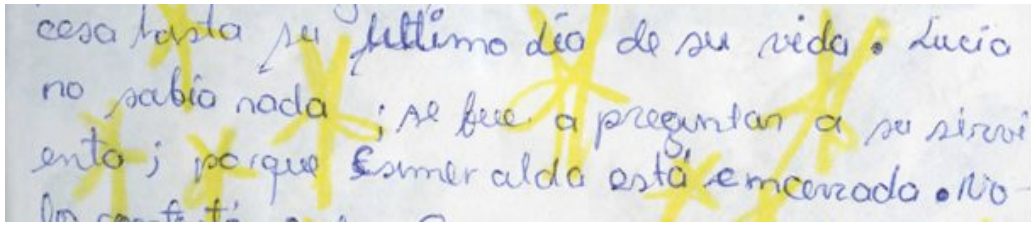 casa hasta su ultimo día de su vida. Lucia
no sabia nada ; se fue a preguntar a su sirvi
enta ; porque Esmeralda está emcerrada. No